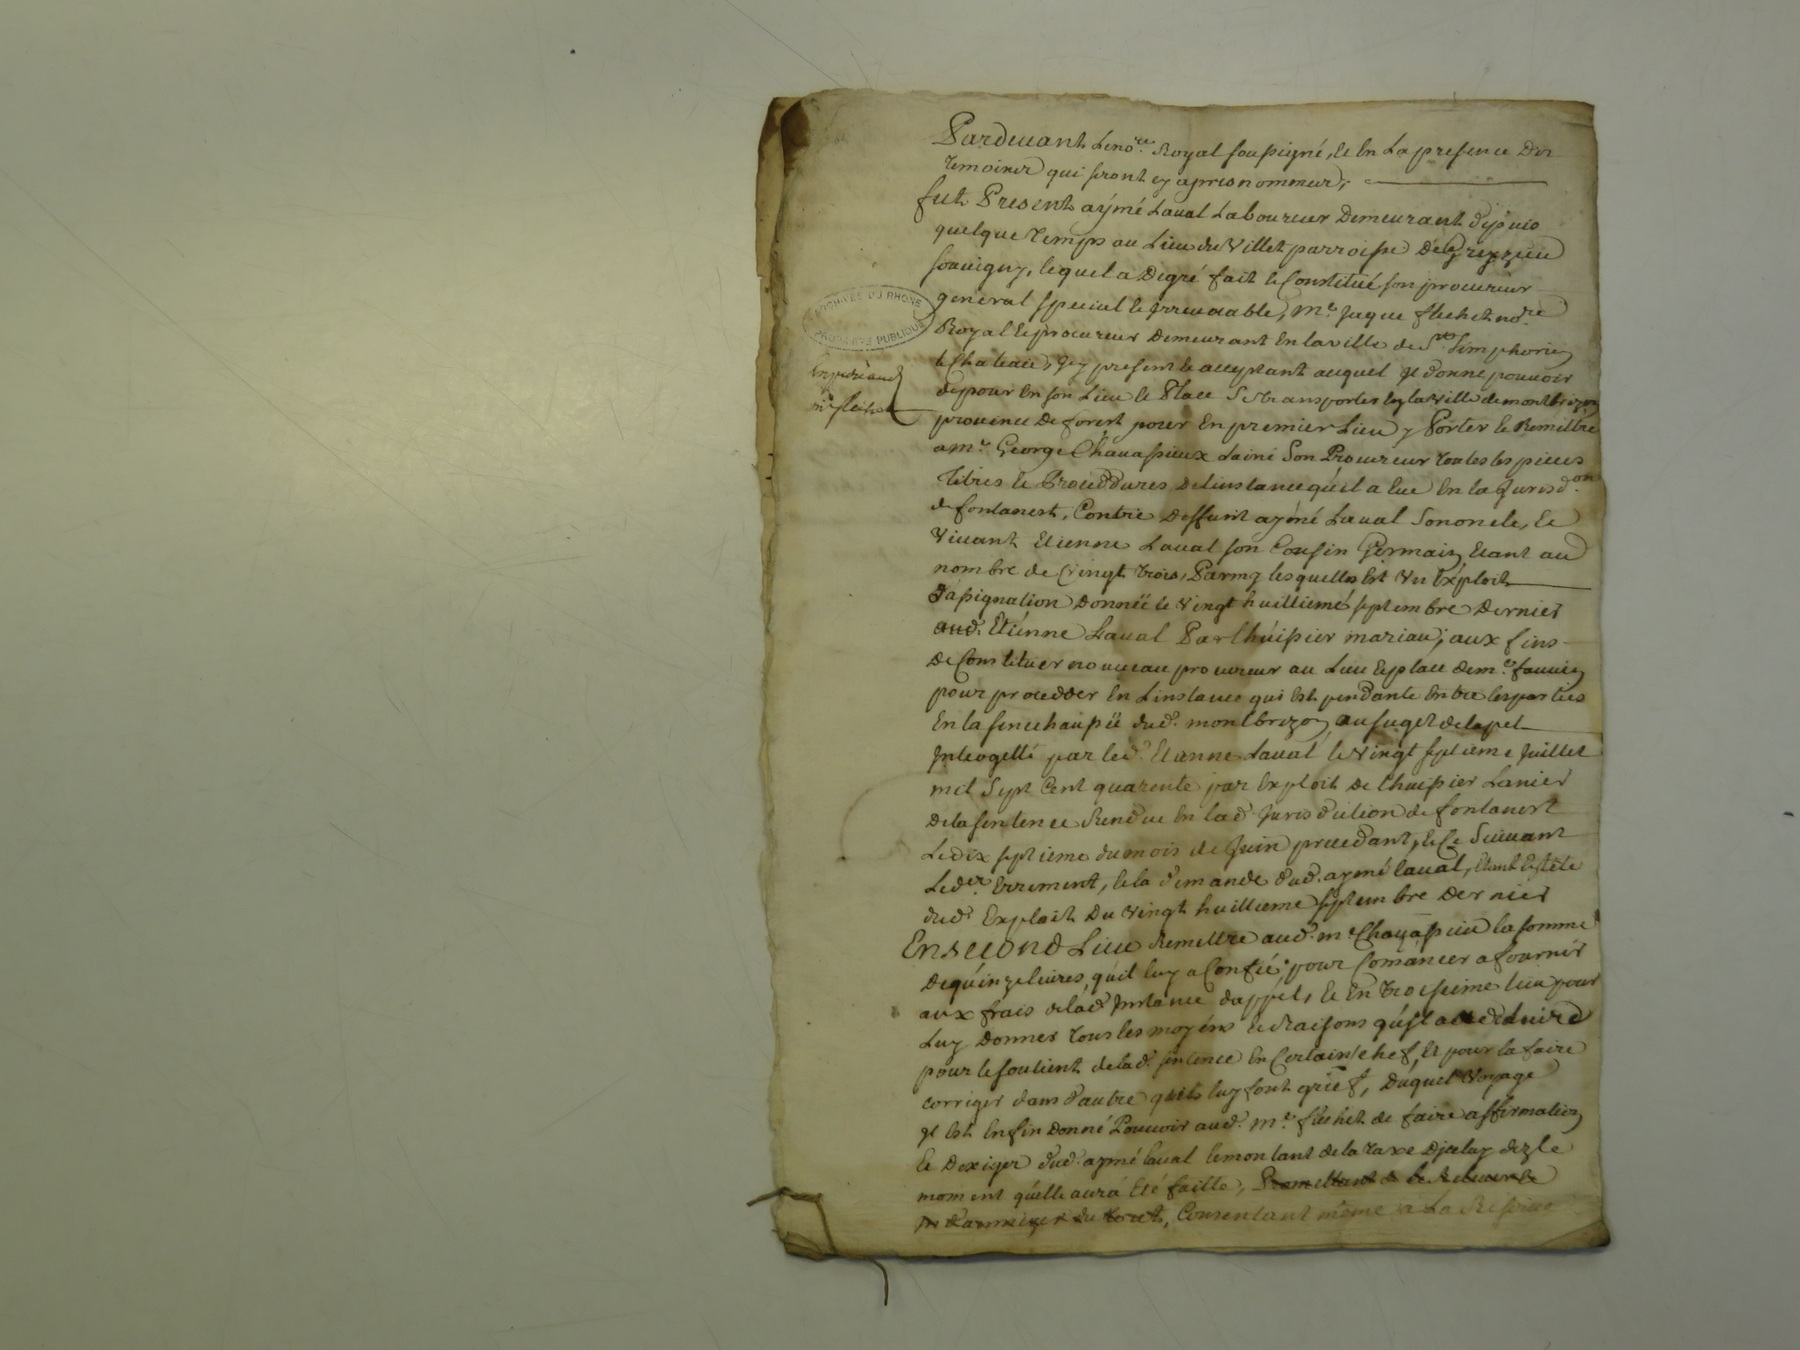 Pardeuant Le no.re Royal soussigné, et En La presence Des
Temoins qui seront cy apres nommes,
fut Present aýmé Laual Laboureur Demeurant depuis
quelque Temps au Lieu du Villet parroisse De Grezieu
souuigny, lequel a Degré fait et Constitué son procureur
general special et Irreuocable, Me Jaque flechet no.re
Royal et procureur Demeurant En la ville de St Simphorien
le Chateau, Icy present et acceptant auquel Il donne pouuoir
de pour En son Lieu et Place Se transporter En la Ville de montbrizon
prouince De forest pour En premier Lieu y Porter et Remettre
a Me George Chauassieux Lainé Son Procureur toutes les pieces
Titres et Proceddures De Linstance qu'il a Eue En la Jurisd.on
de fontanest, Contre Deffunt aymé Laual Son oncle, et
Viuant Etienne Laual son Cousin Germain, Etant au
nombre de Vingt trois, Parmy lesquelles Est Vn Exploit
d'assignation Donnée le Vingt huittieme septembre Dernier
aud. Etiénne Laual Par Lhuissier mariau, aux fins
De Constituer nouueau procureur au Lieu et place de me
pour procedder En Linstance qui Est pendante Entre les parties
En la senechaussée dud. montbrizon, au suget de lapel
Interogetté par led. Etienne Laual le Vingt septieme Juillet
mil Sept Cent quarente par Exploit de Lhuissier Lanier
de la sentence Rendue En lad. Jurisdiction de fontanest
Le dix septieme du mois de Juin precedant, et Ce Suiuant
Le der. Errement, et la demande dud. aymé laual, Etant En tête
dud. Exploit Du Vingt huittieme septembre Dernier
En second Lieu Remettre aud. me Chauassieu la somme
De quinze liures, qu'il luy a Confié pour Comancer a fournir
aux frais de lad. Instance dappel, et En Troisieme lieu pour
Luy Donner Tous les moyéns et Raisons qu'il a a deduire
pour le soutient de lad. sentence En Certain chef, Et pour la faire
corriger dans d'autre quils luy font grief, Duquel Voyage
Il Est Enfin Donné Pouuoir aud. Me flechet de faire affirmation
et Dexiger dud. aymé laual le montant de la taxe Diceluy dez le
moment quélle aura Eté faitte, Promettant de
Consentant même a La
ARCHIVES DU RHONE
PROPRIETE PUBLIQUE
Me flechet